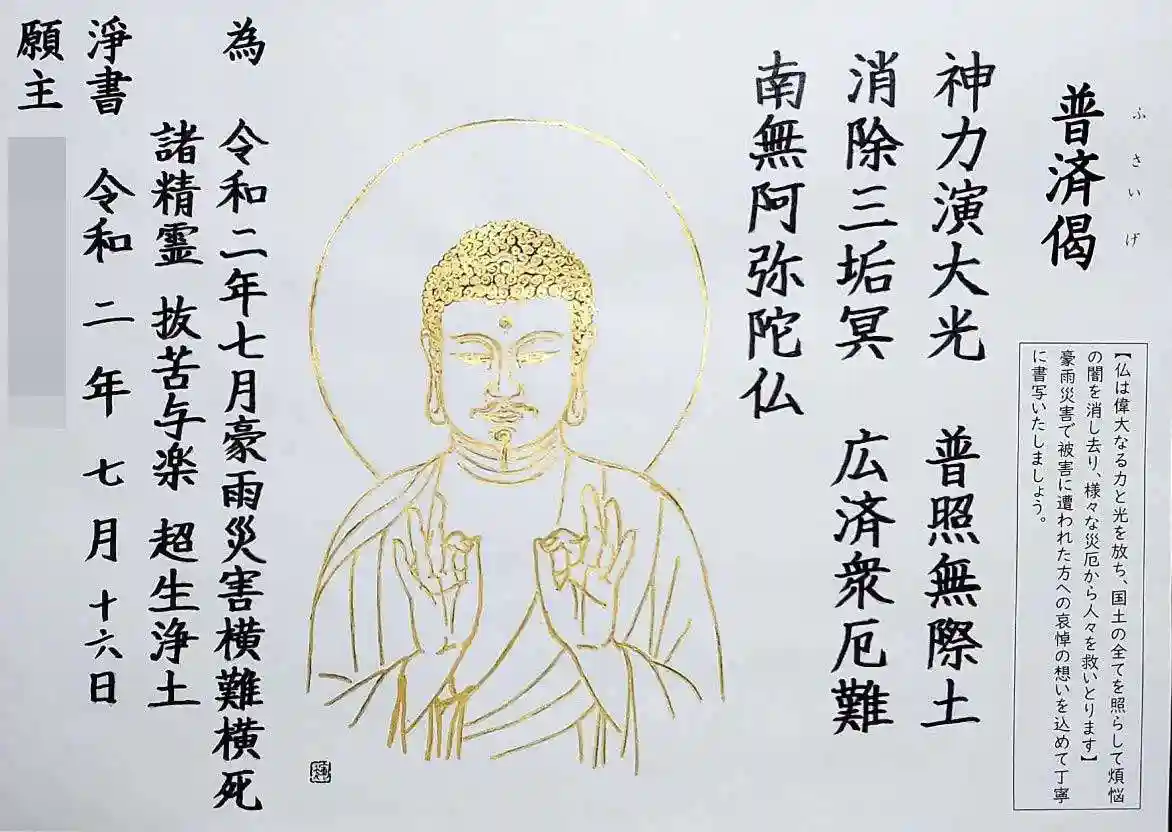 普済偈
ふさいげ
【仏は偉大なる力と光を放ち、国土の全てを照らして煩悩
の闇を消し去り、様々な災厄から人々を救いとります】
豪雨災害で被害に遭われた方への哀悼の想いを込めて丁寧
に書写いたしましょう。
神力演大光 普照無際土
消除三垢冥 広済衆厄難
南無阿弥陀仏
為 令和二年七月豪雨災害横難横死
諸精霊 抜苦与楽 超生浄土
淨書 令和二年七月十六日
願主